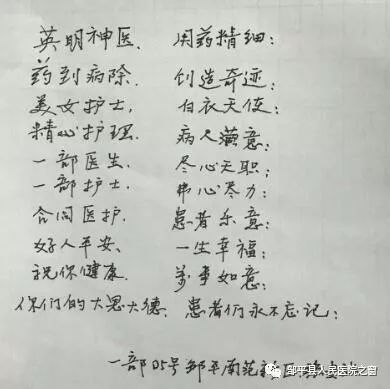 英明神医. 用药精细:
药到病除. 创造奇迹:
美女护士, 白衣天使:
精心护理. 病人满意:
一部医生. 尽心天职:
一部护士. 费心尽力:
合同医护. 患者乐意:
好人平安、 一生幸福:
祝你健康. 万事如意:
你们的大恩大德. 患者们永不忘记:
一部05号邹平南范
邹平县人民医院之窗